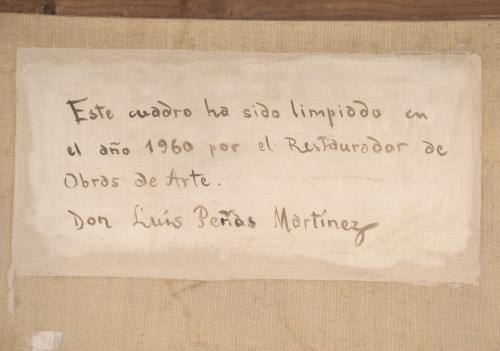 Este cuadro ha sido limpiado en
el año 1960 por el Restaurador de
Obras de Arte.
Don Luís Peñas Martínez